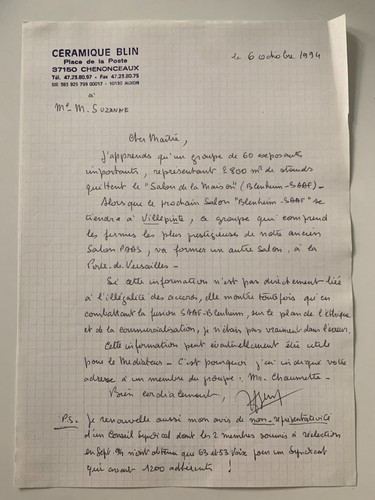 CERAMIQUE BLIN
Place de la Poste
37150 CHENONCEAUX
Tél. 47.23.80.97 - Fax 47.23.80.75
10130 AUXON
le 6 octobre 1994
à
Me M. SUZANNE
Cher Maître,
J'apprends qu'un groupe de 60 exposants
importants, représentant 2 800 m² de stands
quittent le "Salon de la Maison" (Blenheim-SAAF)-
Alors que le prochain Salon "Blenheim-SAAF" se
tiendra à Villepinte, ce groupe qui comprend
les firmes les plus prestigieuses de notre ancien
Salon PAAS, va former un autre Salon, à la
Porte-de-Versailles-
Si cette information n'est pas directement liée
à l'illégalité des accords, elle montre toutefois qu'en
combattant la fusion SAAF-Blenheim, sur le plan de l'éthique
et de la commercialisation, je n'étais pas vraiment dans l'erreur.
Cette information peut éventuellement être utile
pour le Médiateur - C'est pourquoi j'ai indiqué votre
adresse à un membre du groupe: Mr. Chaumette-
Bien cordialement,
P.S. - Je renouvelle aussi mon avis de non-représentativité
d'un Conseil Syndical dont les 2 membres soumis à réélection
en Sept. 94 n'ont obtenu que 63 et 53 Voix pour un Syndicat
qui avait 1200 adhérents !